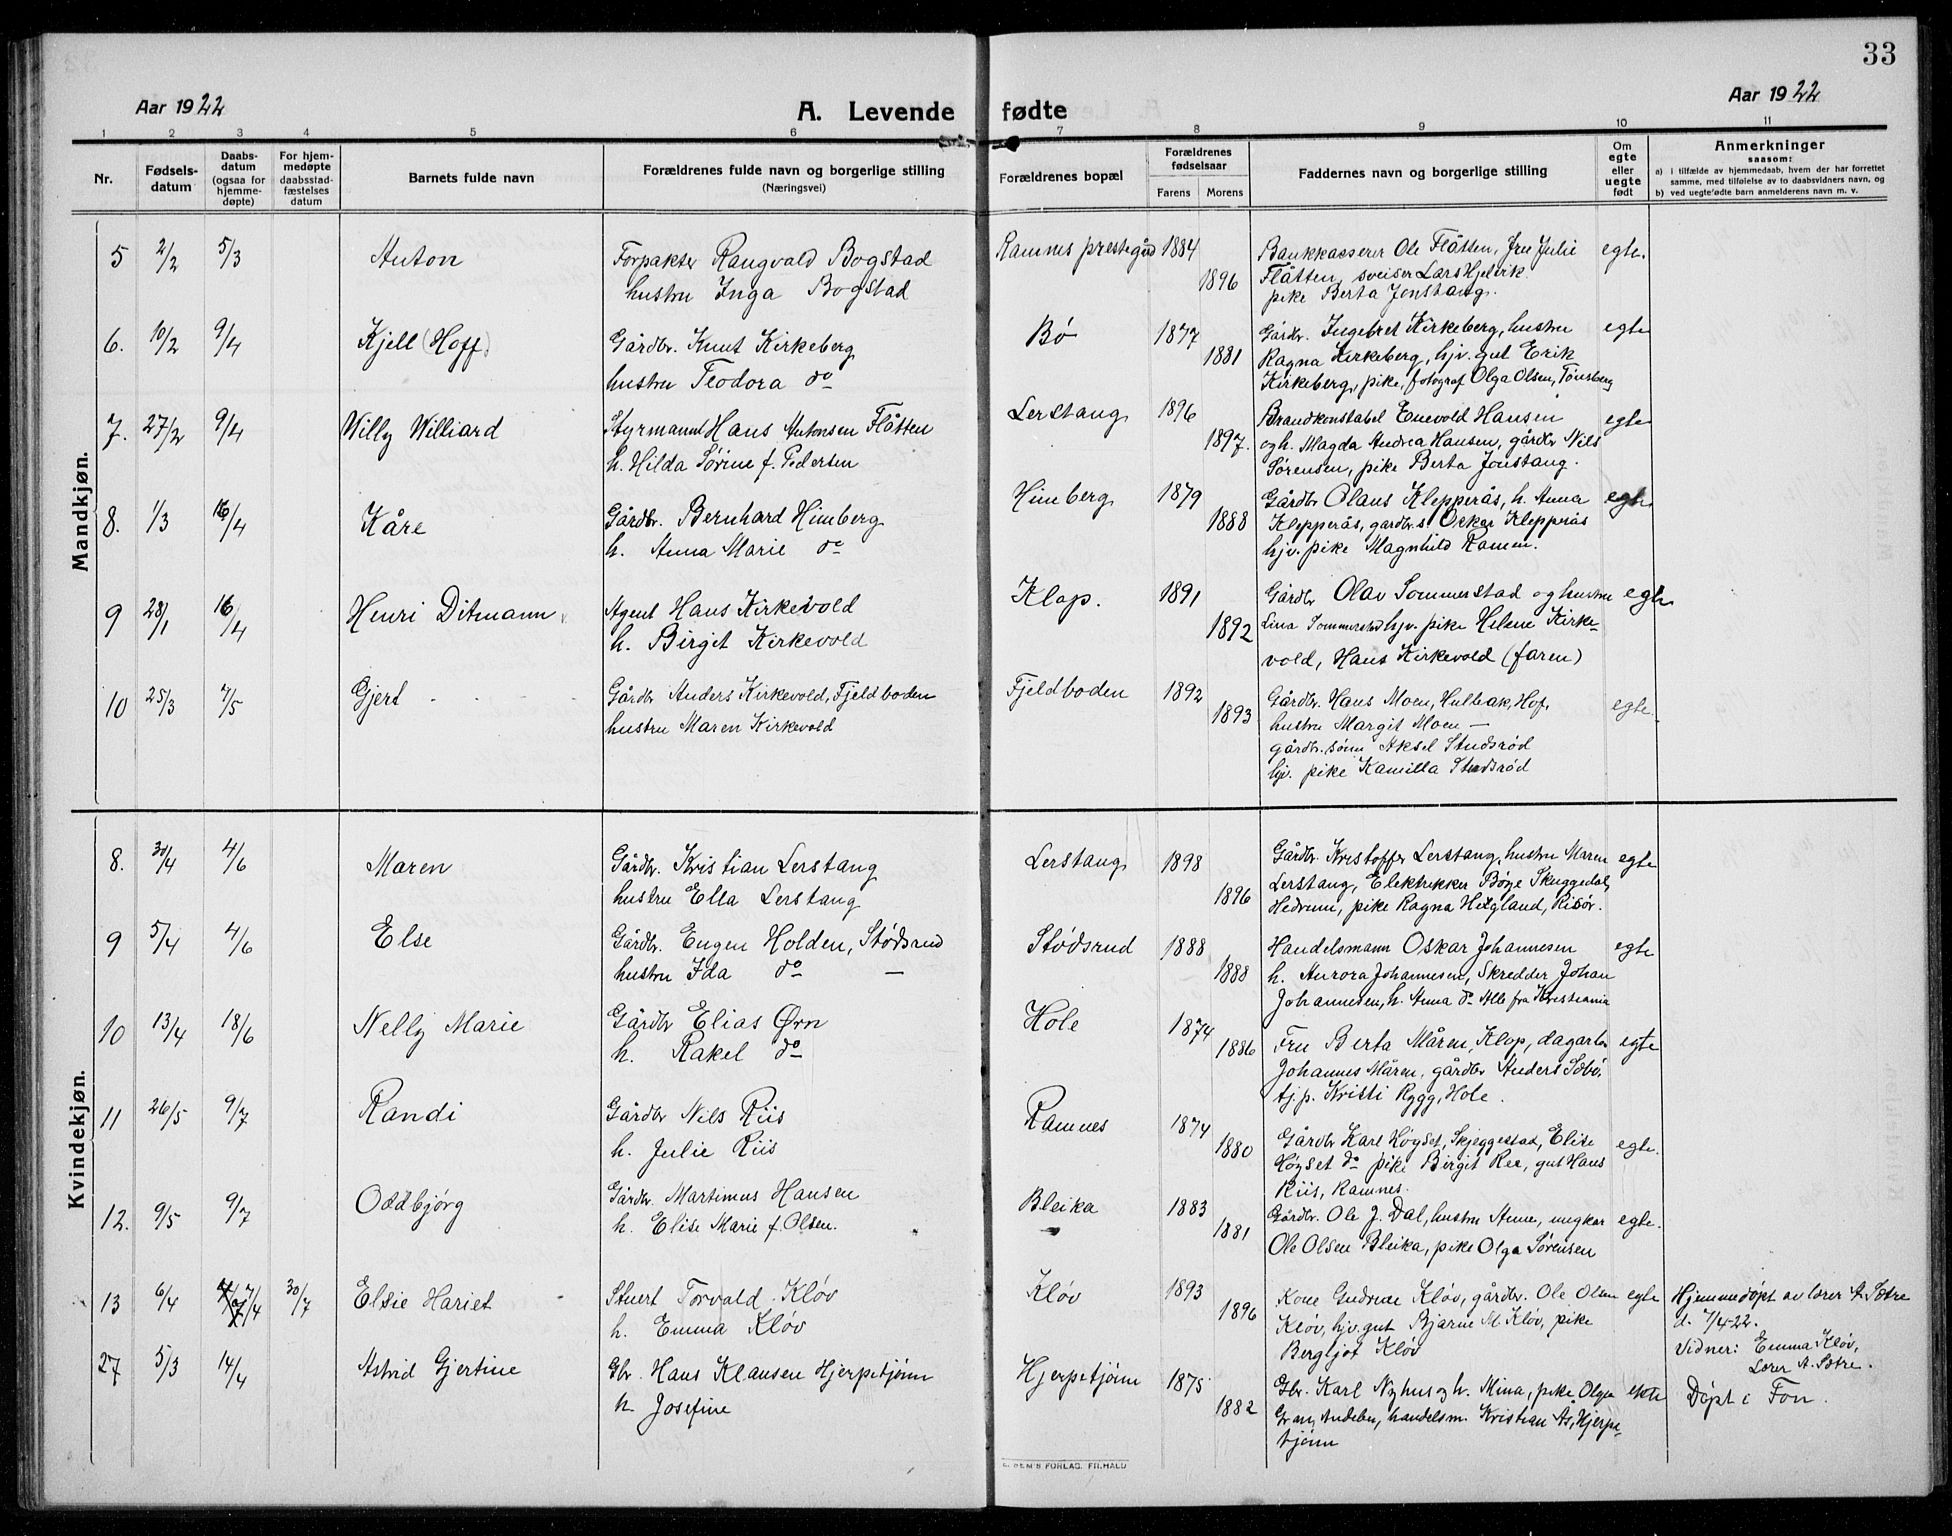 33
Aar 1922
A. Levende fødte
Aar 1922
1 2 3 4 5 6 7 8 9 10 11
Nr.
Fødsels-
datum
Daabs-
datum
(ogsaa for
hjemme-
døpte)
For hjem-
medøpte
daabsstad-
fæstelses
datum
Barnets fulde navn
Forældrenes fulde navn og borgerlige stilling
(Næringsvei)
Forældrenes bopæl
Forældrenes
fødselsaar
Farens Morens
Faddernes navn og borgerlige stilling
Om
egte
eller
uegte
født
Anmerkninger
saasom:
a) i tilfælde av hjemmedaab, hvem der har forrettet
samme, med tilføielse av to daabsvidners navn, og
b) ved uegtefødte barn anmelderens navn m. v.
Mandkjøn.
5 2/2 5/3 Anton
Forpakter Rangvald Bogstad
hustru Inga Bogstad
Ramnes prestegård 1884 1896
Bankkasserer Ole Flåtten, fru Julie
Flåtten, sveiser Lars Hjelvik.
pike Berta Jonstang.
egte.
6. 10/2 9/4 Kjell (Hoff)
Gårdbr. Knut Kirkeberg
hustru Teodora do
Bø 1877 1881
Gårdbr. Ingebret Kirkeberg, hustru
Ragna Kirkeberg, hjv. gut Erik
Kirkeberg, pike, fotograf Olga Olsen, Tønsberg
egte
7. 27/2 9/4 Willy Williard
Styrmann Hans Antonsen Flåtten
h. Hilda Sørine f. Pedersen
Lerstang 1896 1897.
Brandkonstabel Enevold Hansen
og h. Magda Andrea Hansen, gårdbr Nils
Sørensen, pike Berta Jonstang.
egte
8. 1/3 16/4 Kåre
Gårdbr. Bernhard Himberg
h. Anna Marie do
Himberg 1879 1888
Gårdbr Olaus Klepperås, h. Anna
Klepperås, gårdbr.s. Oskar Klepprås
hjv. pike Magnhild Ramen.
egte
9 28/1 16/4 Henri Ditmann
Agent Hans Kirkevold
h. Birget Kirkevold
Klop. 1891 1892
Gårdbr Olav Sommerstad og hustru
Lina Sommerstad hjv. pike Helene Kirke-
vold, Hans Kirkevold (faren)
egte
10 25/3 7/5 Gjert
Gårdbr Anders Kirkevold, Fjeldboden
hustru Maren Kirkevold
Fjeldboden 1892 1893
Gårdbr. Hans Moen, Hulbak, Hof,
hustru Margit Moen —
gårdbr. sønn Aksel Studsrød
hjv. pike Kamilla Studsrød
egte
Kvindekjøn.
8. 30/4 4/6 Maren
Gårdbr. Kristian Lerstang
hustru Ella Lerstang
Lerstang 1898 1896
Gårdbr. Kristoffer Lerstang, hustru Maren
Lerstang, Elektrikker Børge Skuggedal,
Hedrum, pike Ragna Helgland, Risør.
egte
9 5/4 4/6 Else
Gårdbr. Eugen Holden, Stødsrud
hustru Ida do —
Stødsrud 1888 1888
Handelsmann Oskar Johannesen
h. Aurora Johannesen, Skredder Johan
Johannesen, h. Anna do Alle fra Kristiania
egte
10 13/4 18/6 Nelly Marie
Gårdbr Elias Ørn
h. Rakel do
Hole 1874 1886
Fru Berta Måren, Klop, dagarb.
Johannes Måren, gårdbr Anders Sæbø,
tj.p. Kristi Rygg, Hole.
egte
11 26/5 9/7 Randi
Gårdbr Nils Riis
h. Julie Riis
Ramnes 1874 1880
Gårdbr Karl Høyset, Skjeggestad, Elise
Høyset do pike Birgit Ree, gut Hans
Riis, Ramnes.
egte.
12. 9/5 9/7 Oddbjørg
Gårdbr. Martinius Hansen
h. Elise Marie f. Olsen.
Bleika 1883 1881
Gårdbr. Ole J. Dal, hustru Anne, ungkar
Ole Olsen Bleika, pike Olga Sørensen
egte.
13 6/4 7/4 30/7 Elsie Hariet
Stuert Torvald Kløv
h. Emma Kløv
Kløv 1893 1896
Kone Gudrun Kløv, gårdbr. Ole Olsen
Kløv, hjv. gut Bjarne M. Kløv, pike
Bergljot Kløv
egte
Hjemmedøpt av lærer A. Sætre
d. 7/4-22.
Vidner: Emma Kløv,
Lærer A. Sætre.
27 5/3 14/4 Astrid Gjertine
Gbr. Hans Klausen Hjerpetjønn
h. Josefine
Hjerpetjønn 1875 1882
Gbr. Karl Nyhus og h. Mina, pike Olga
Gran, Andebu, handelsm. Kristian Ås, Hjerpe-
tjønn
ekte
Døpt i Fon.
SEM'S FORLAG. FR. HALD